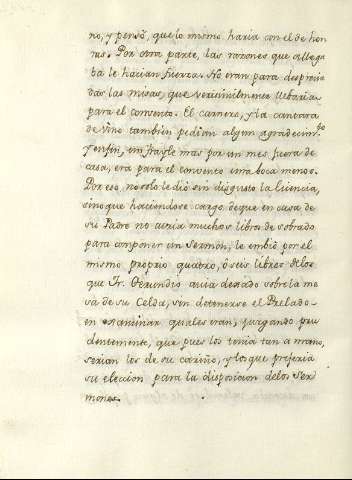 no, y pensò, que lo mismo haria con el de hon
ras. Por otra parte, las razones que allega
ba le hacian fuerza. No eran para desprecia
das las misas, que verisimilmente llebaria
para el convento. El carnero, y la cantara
de vino tambien pedian algun agradecim.to
y enfin, un frayle mas por un mes fuera de
casa, era para el convento una boca menos.
Por eso, no solo le dió sin disgusto la licencia,
sino que haciendose cargo de que en casa de
su Padre no avria muchos libros de sobrado
para componer un Sermón, le embió por el
mismo proprio quatro, ò seis libros delos
que Fr. Gerundio avia dexado sobre la me
sa de su Celda, sin detenerse el Prelado
en examinar quales eran, juzgando pru
dentemente, que pues los tenia tan a mano,
serian los de su cariño, y los que preferia
su eleccion para la disposicion delos Ser
mones.